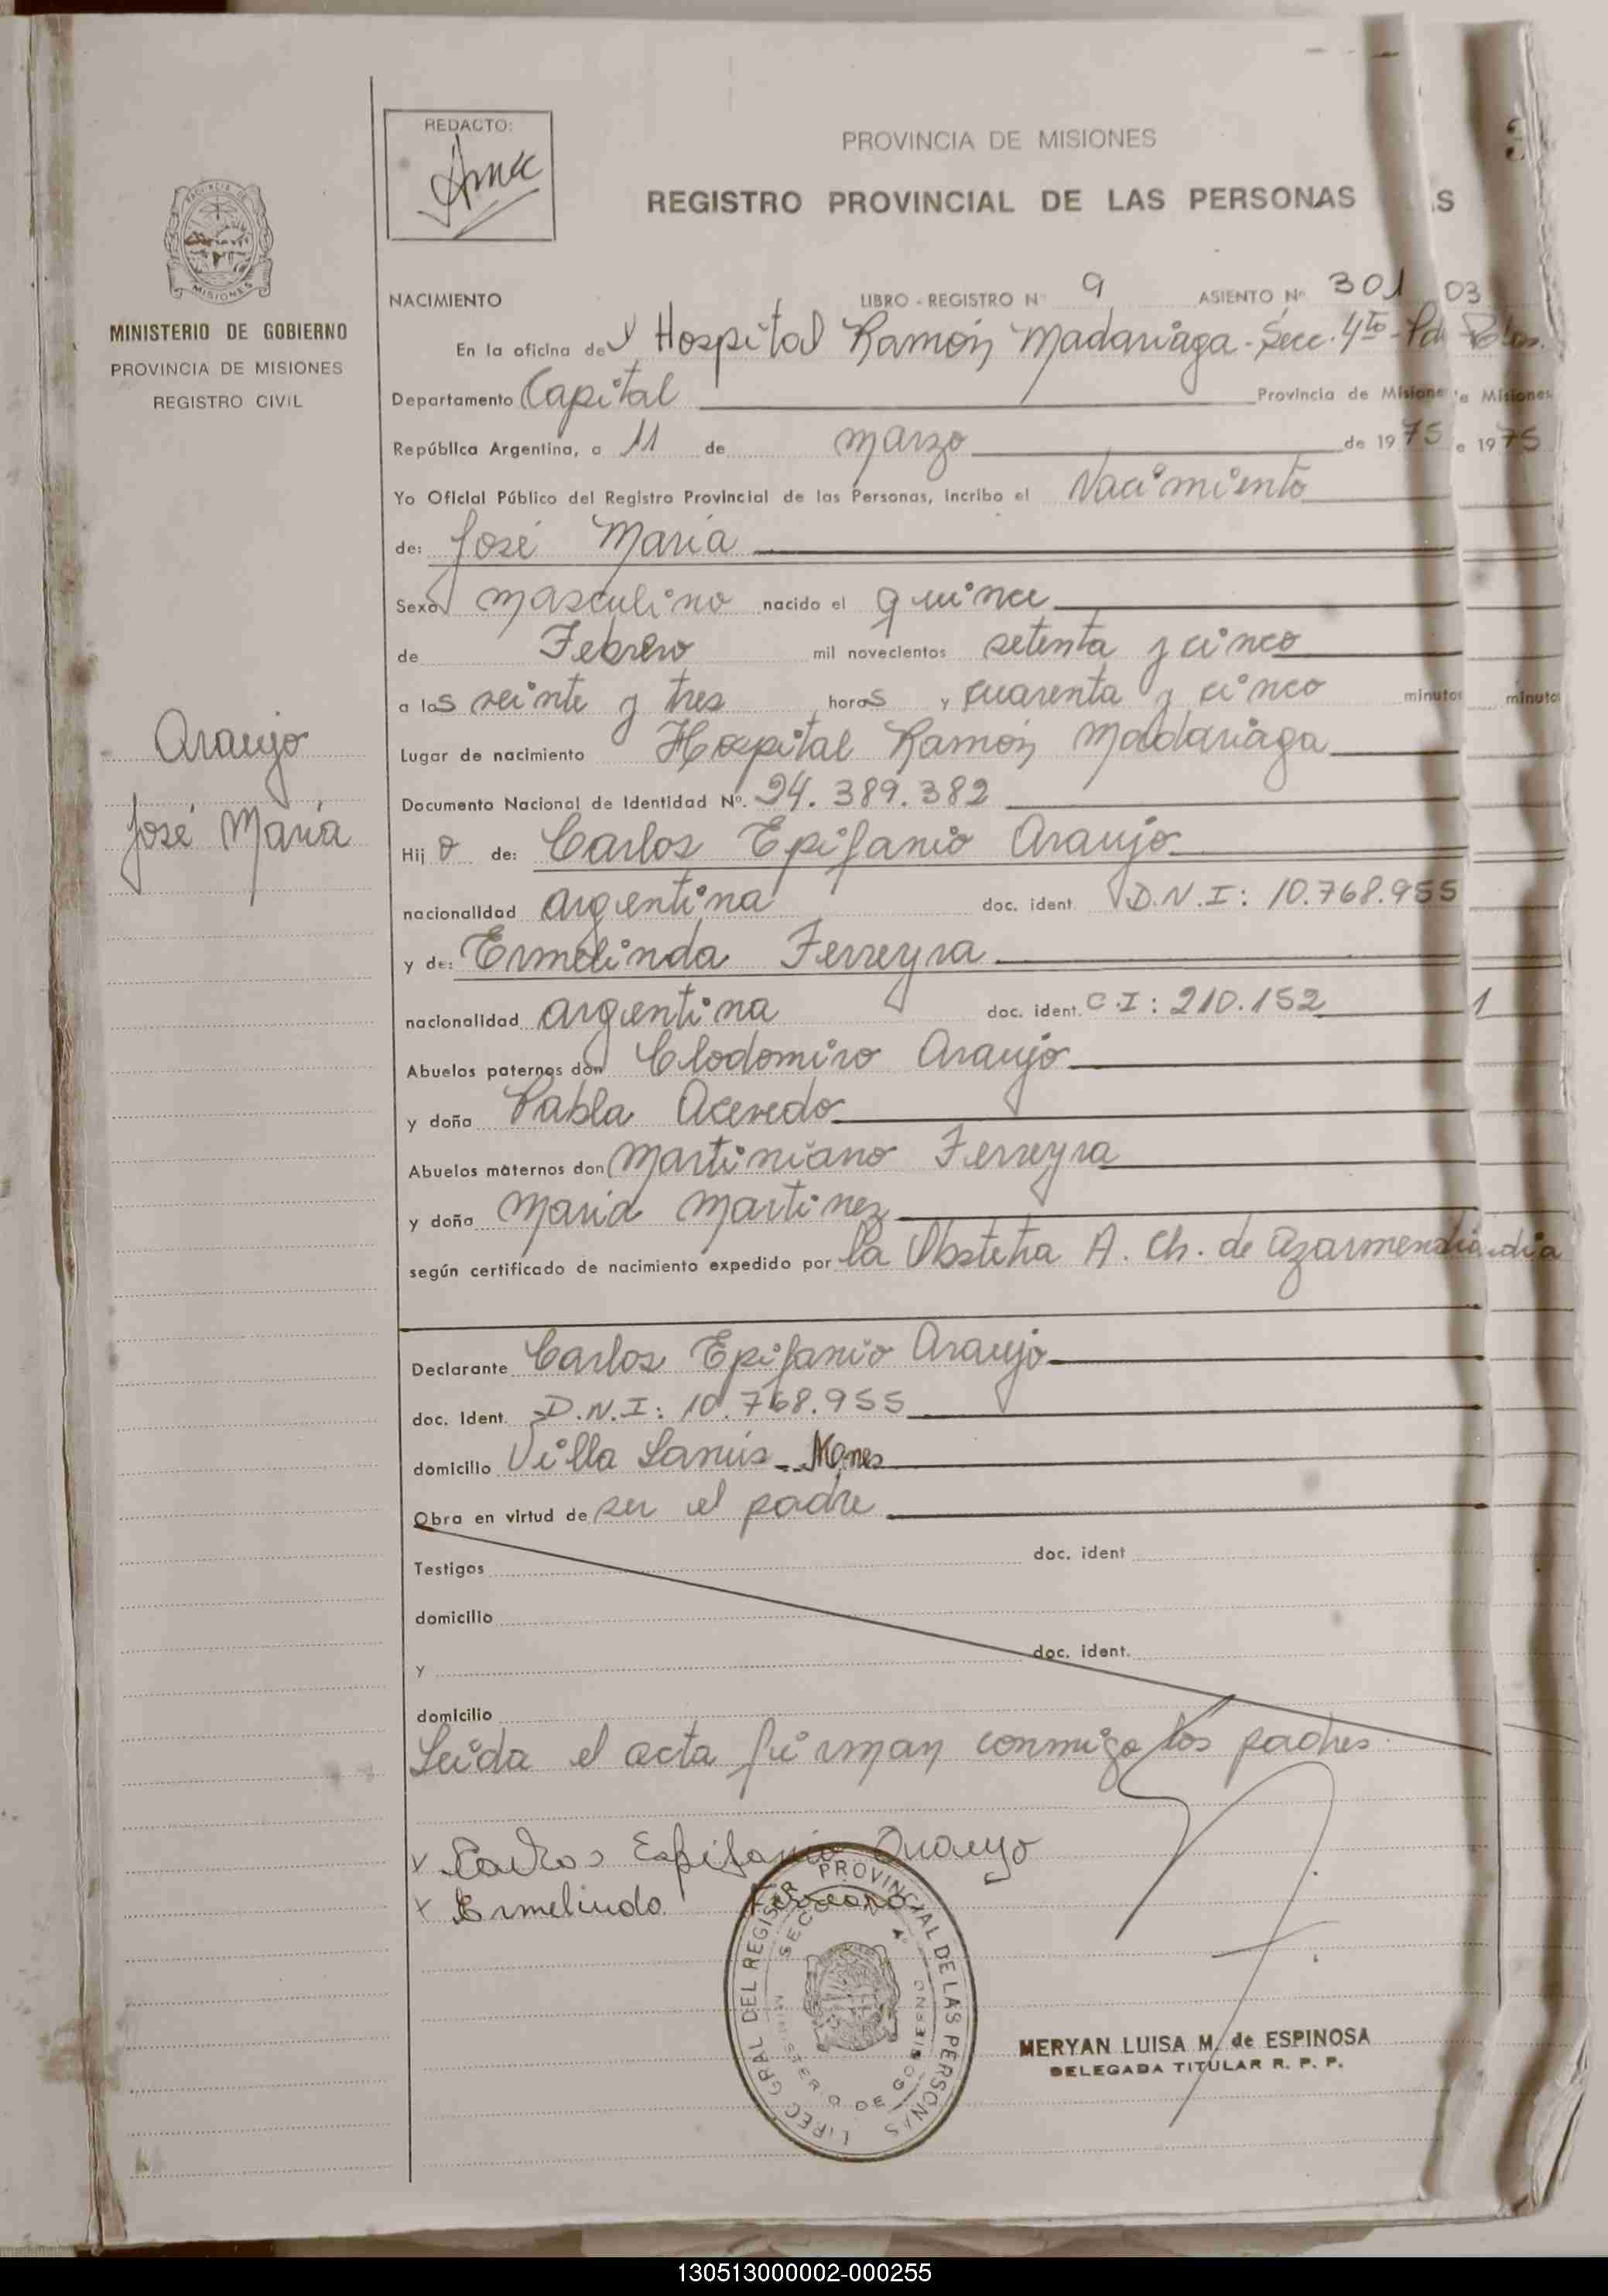 REDACTO:
PROVINCIA DE MISIONES
REGISTRO PROVINCIAL DE LAS PERSONAS
MISIONES
MINISTERIO DE GOBIERNO
PROVINCIA DE MISIONES
REGISTRO CIVIL
NACIMIENTO LIBRO - REGISTRO Nº 9 ASIENTO Nº 301
En la oficina del Hospital Ramón Madariaga - Secc. 4ta - Pdas
Departamento Capital Provincia de Misiones
República Argentina, a 11 de marzo de 1975
Yo Oficial Público del Registro Provincial de las Personas, incribo el Nacimiento
de: José María
Sexo masculino nacido el quince
de Febrero mil novecientos setenta y cinco
a las veinte y tres horas y cuarenta y cinco minutos
Lugar de nacimiento Hospital Ramón Madariaga
Araujo
José María
Documento Nacional de Identidad Nº. 24.389.382
Hijo de: Carlos Epifanio Araujo
nacionalidad argentina doc. ident. D.N.I: 10.768.955
y de: Ermelinda Ferreyra
nacionalidad argentina doc. ident. C.I: 210.152
Abuelos paternos don Clodomiro Araujo
y doña Pabla Acevedo
Abuelos maternos don Martiniano Ferreyra
y doña María Martinez
según certificado de nacimiento expedido por la Obstetra A. Ch. de Azarmendia
Declarante Carlos Epifanio Araujo
doc. Ident. D.N.I: 10.768.955
domicilio Villa Lanús - Mones
Obra en virtud de ser el padre
Testigos doc. ident
domicilio
y doc. ident.
domicilio
Leída el acta firman conmigo los padres
x Carlos Epifanio Araujo
x Ermelinda
DIREC. GRAL DEL REGISTR PROVINCIAL DE LAS PERSONAS
MINISTERIO DE GOBIERNO
MERYAN LUISA M. de ESPINOSA
DELEGADA TITULAR R. P. P.
130513000002-000255